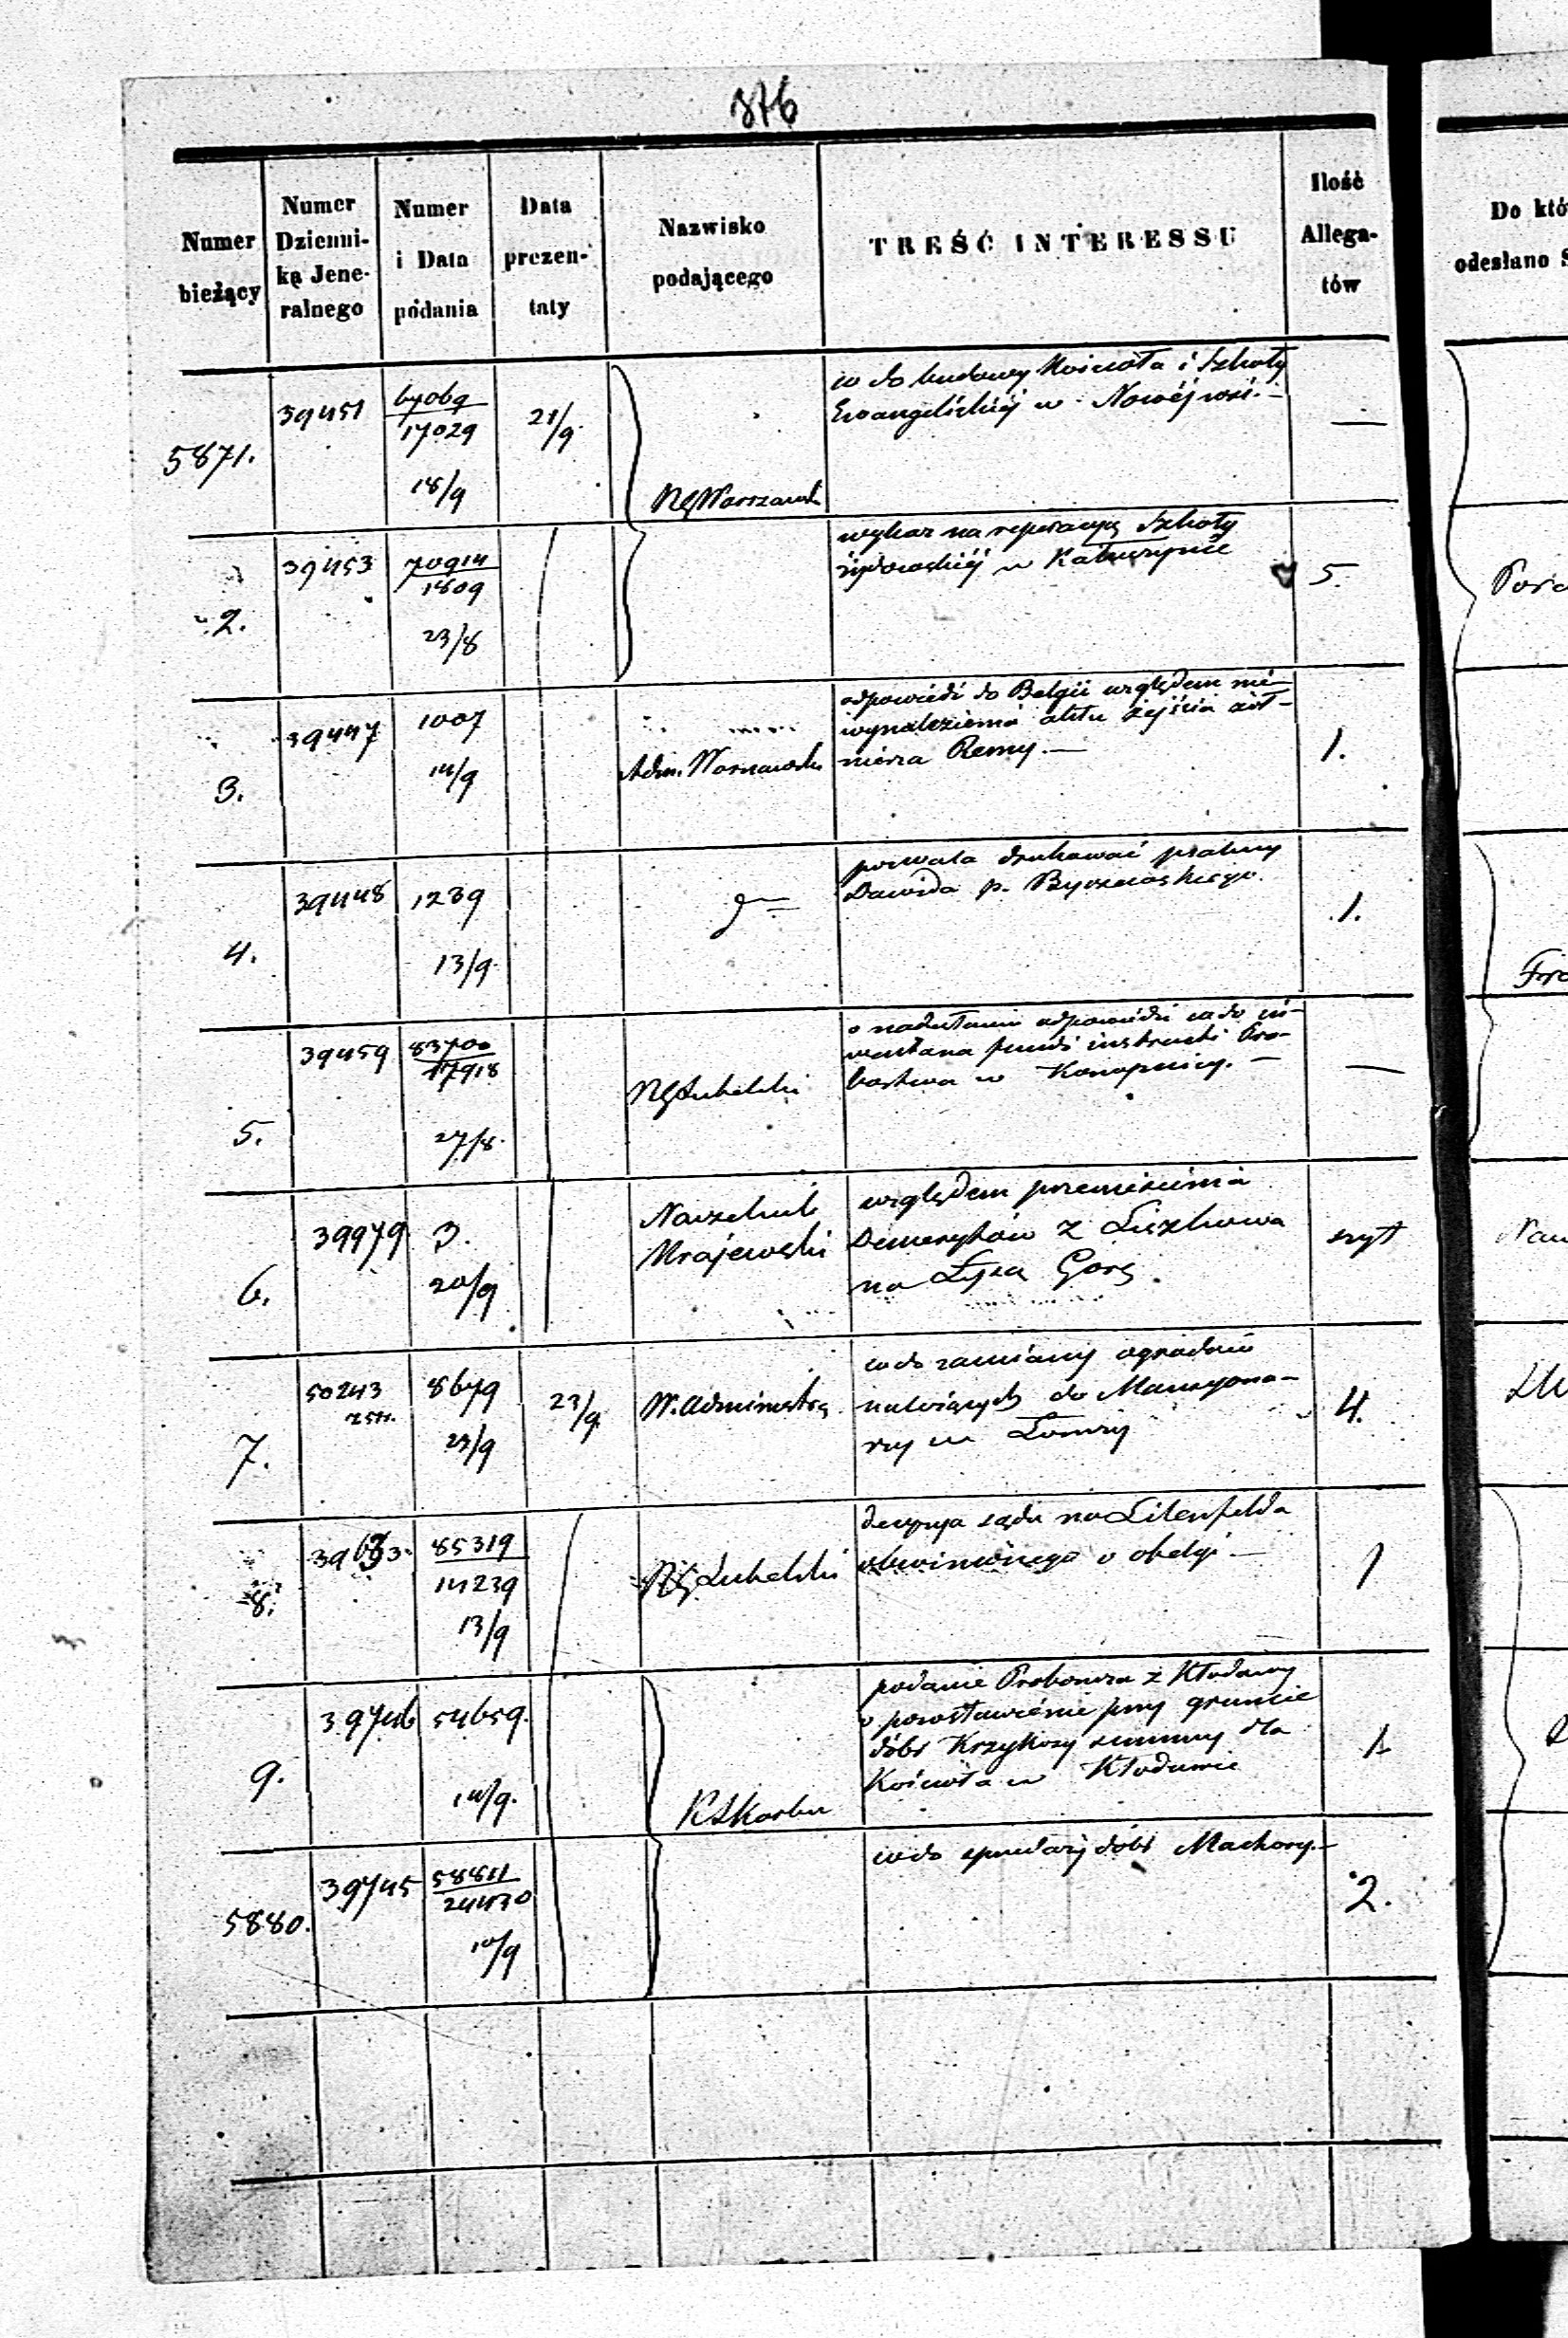 376
Numer bieżący
Numer Dzienni-
ka Jene-
ralnego
Numer
i Data
podania
Data
prezen-
taty
Nazwisko
podającego
TREŚĆ INTERESSU
Ilość
Allega-
tów
Do któ
odesłano S
5871.
39451
67069
17029
18/9
21/9
RG Warszawsk
co do budowy Kościoła i Szkoły
Ewangelickiéj w Nowéj wsi. –
—
2.
39453
70914
1809
23/8
wykaz na reperacyą Szkoły
żydowskiéj w Kałuszynie
5.
3.
39447
1007
14/9
Adm. Warszawsk
odpowiedź do Belgii względem nie-
wynalezienia aktu zejścia żoł-
nierza Remy. —
1.
4.
39448
1239
13/9
pozwala drukować psalmy
Dawida p.
1.
5.
39459
83700
17918
27/8
RG Lubelski
o nadesłanie odpowiedzi co do in-
wentarza fundi instructi Pro-
bostwa w Konopnicy. —
—
6.
39979
3.
20/9
Naczelnik
Krajewski
względem przeniesienia
Demerytów z Liszkowa
na Łysą Górę.
szyt
7.
50243
8679
23/9
23/9
W. Administr
co do zamiany ogrodów
należących do Mansyona-
rzy w Łomży
4.
8.
85319
14239
13/9
RG Lubelski
decyzya sądu na Lilenfelda
obwinionego o obelgi —
1
9.
39746
54659.
14/9.
K Skarbu
podanie Proboszcza z Kłodawy
o pozostawienie przy gruncie
dóbr Krzykosy summy dla
Kościoła w Kłodawie
1.
5880.
39745
58811
24430
10/9
co do sprzedaży dóbr Machory. –
2.